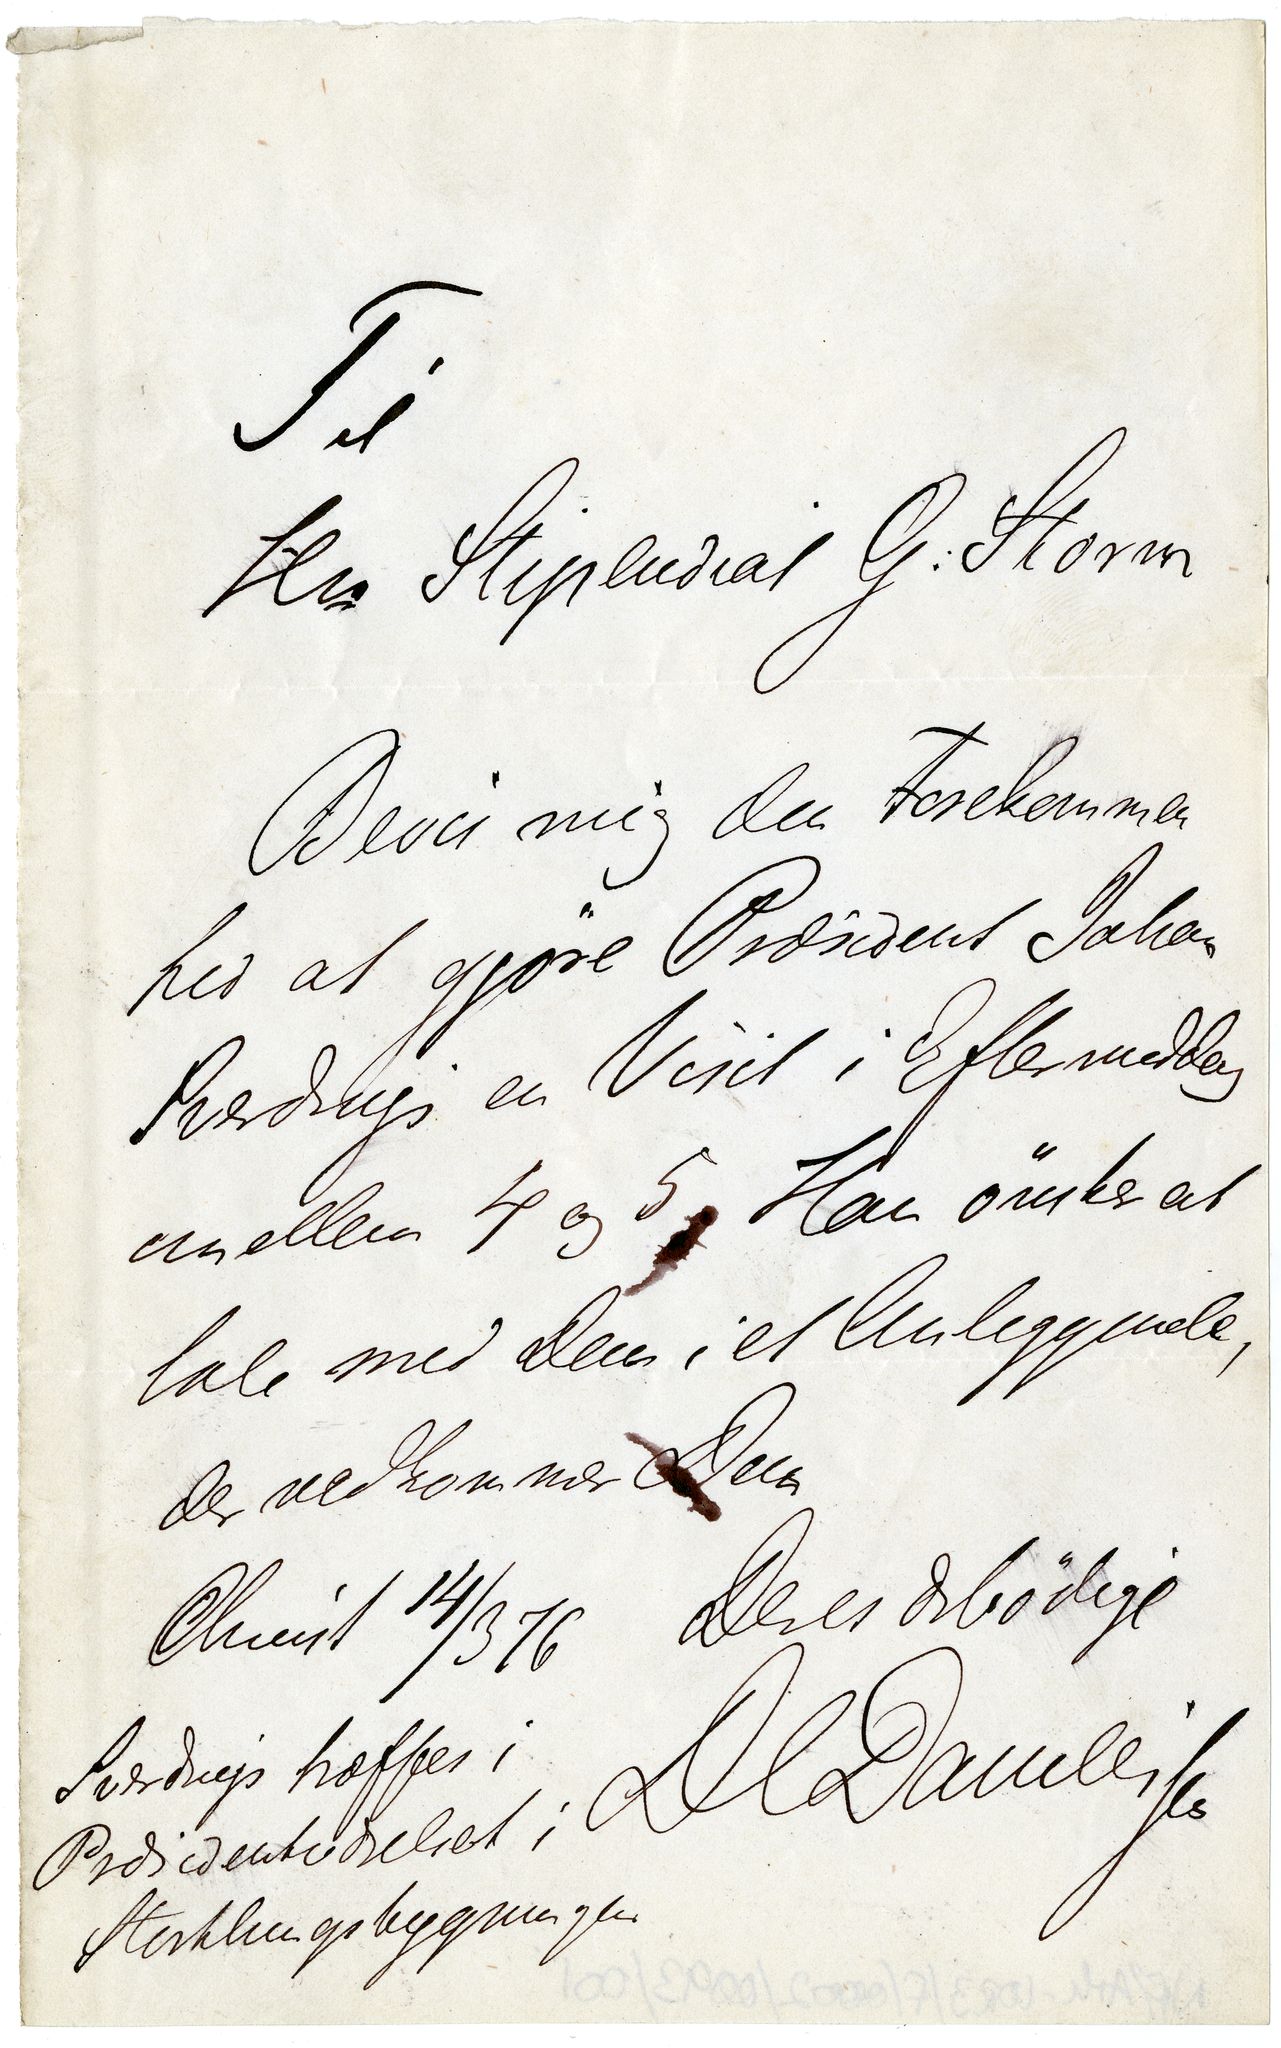 Til
Hr Stipendiat G. Storm
Bevis mig den Forekommen
hed at gjöre Præsident Johan
Sverdrup en Visit i Eftermiddag
mellem 4 og 5. Han önsker at
tale med Dem i et Anleggende,
der vedkommer Dem
Christ 14/3 76 Deres ærbödige
D C Danielssen
Sverdrup træffes i
Præsidentværelset i
Storthingsbygningen